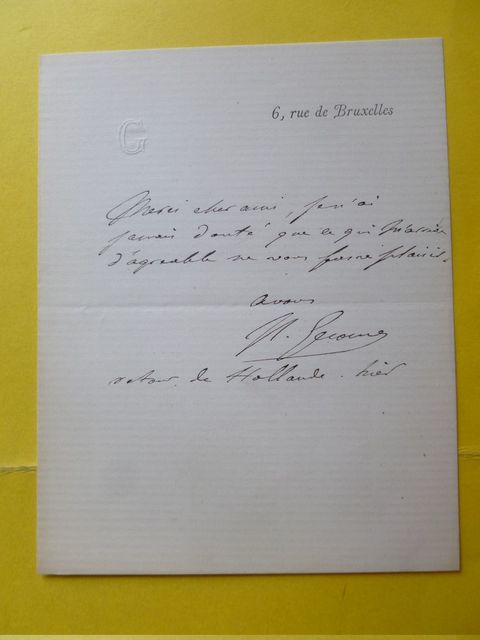 G
6, rue de Bruxelles
Merci cher ami, je n'ai
jamais douté que ce qui m'arrive
d'agreable ne vous fasse plaisir.
a vous
Gerome
retour de Hollande hier